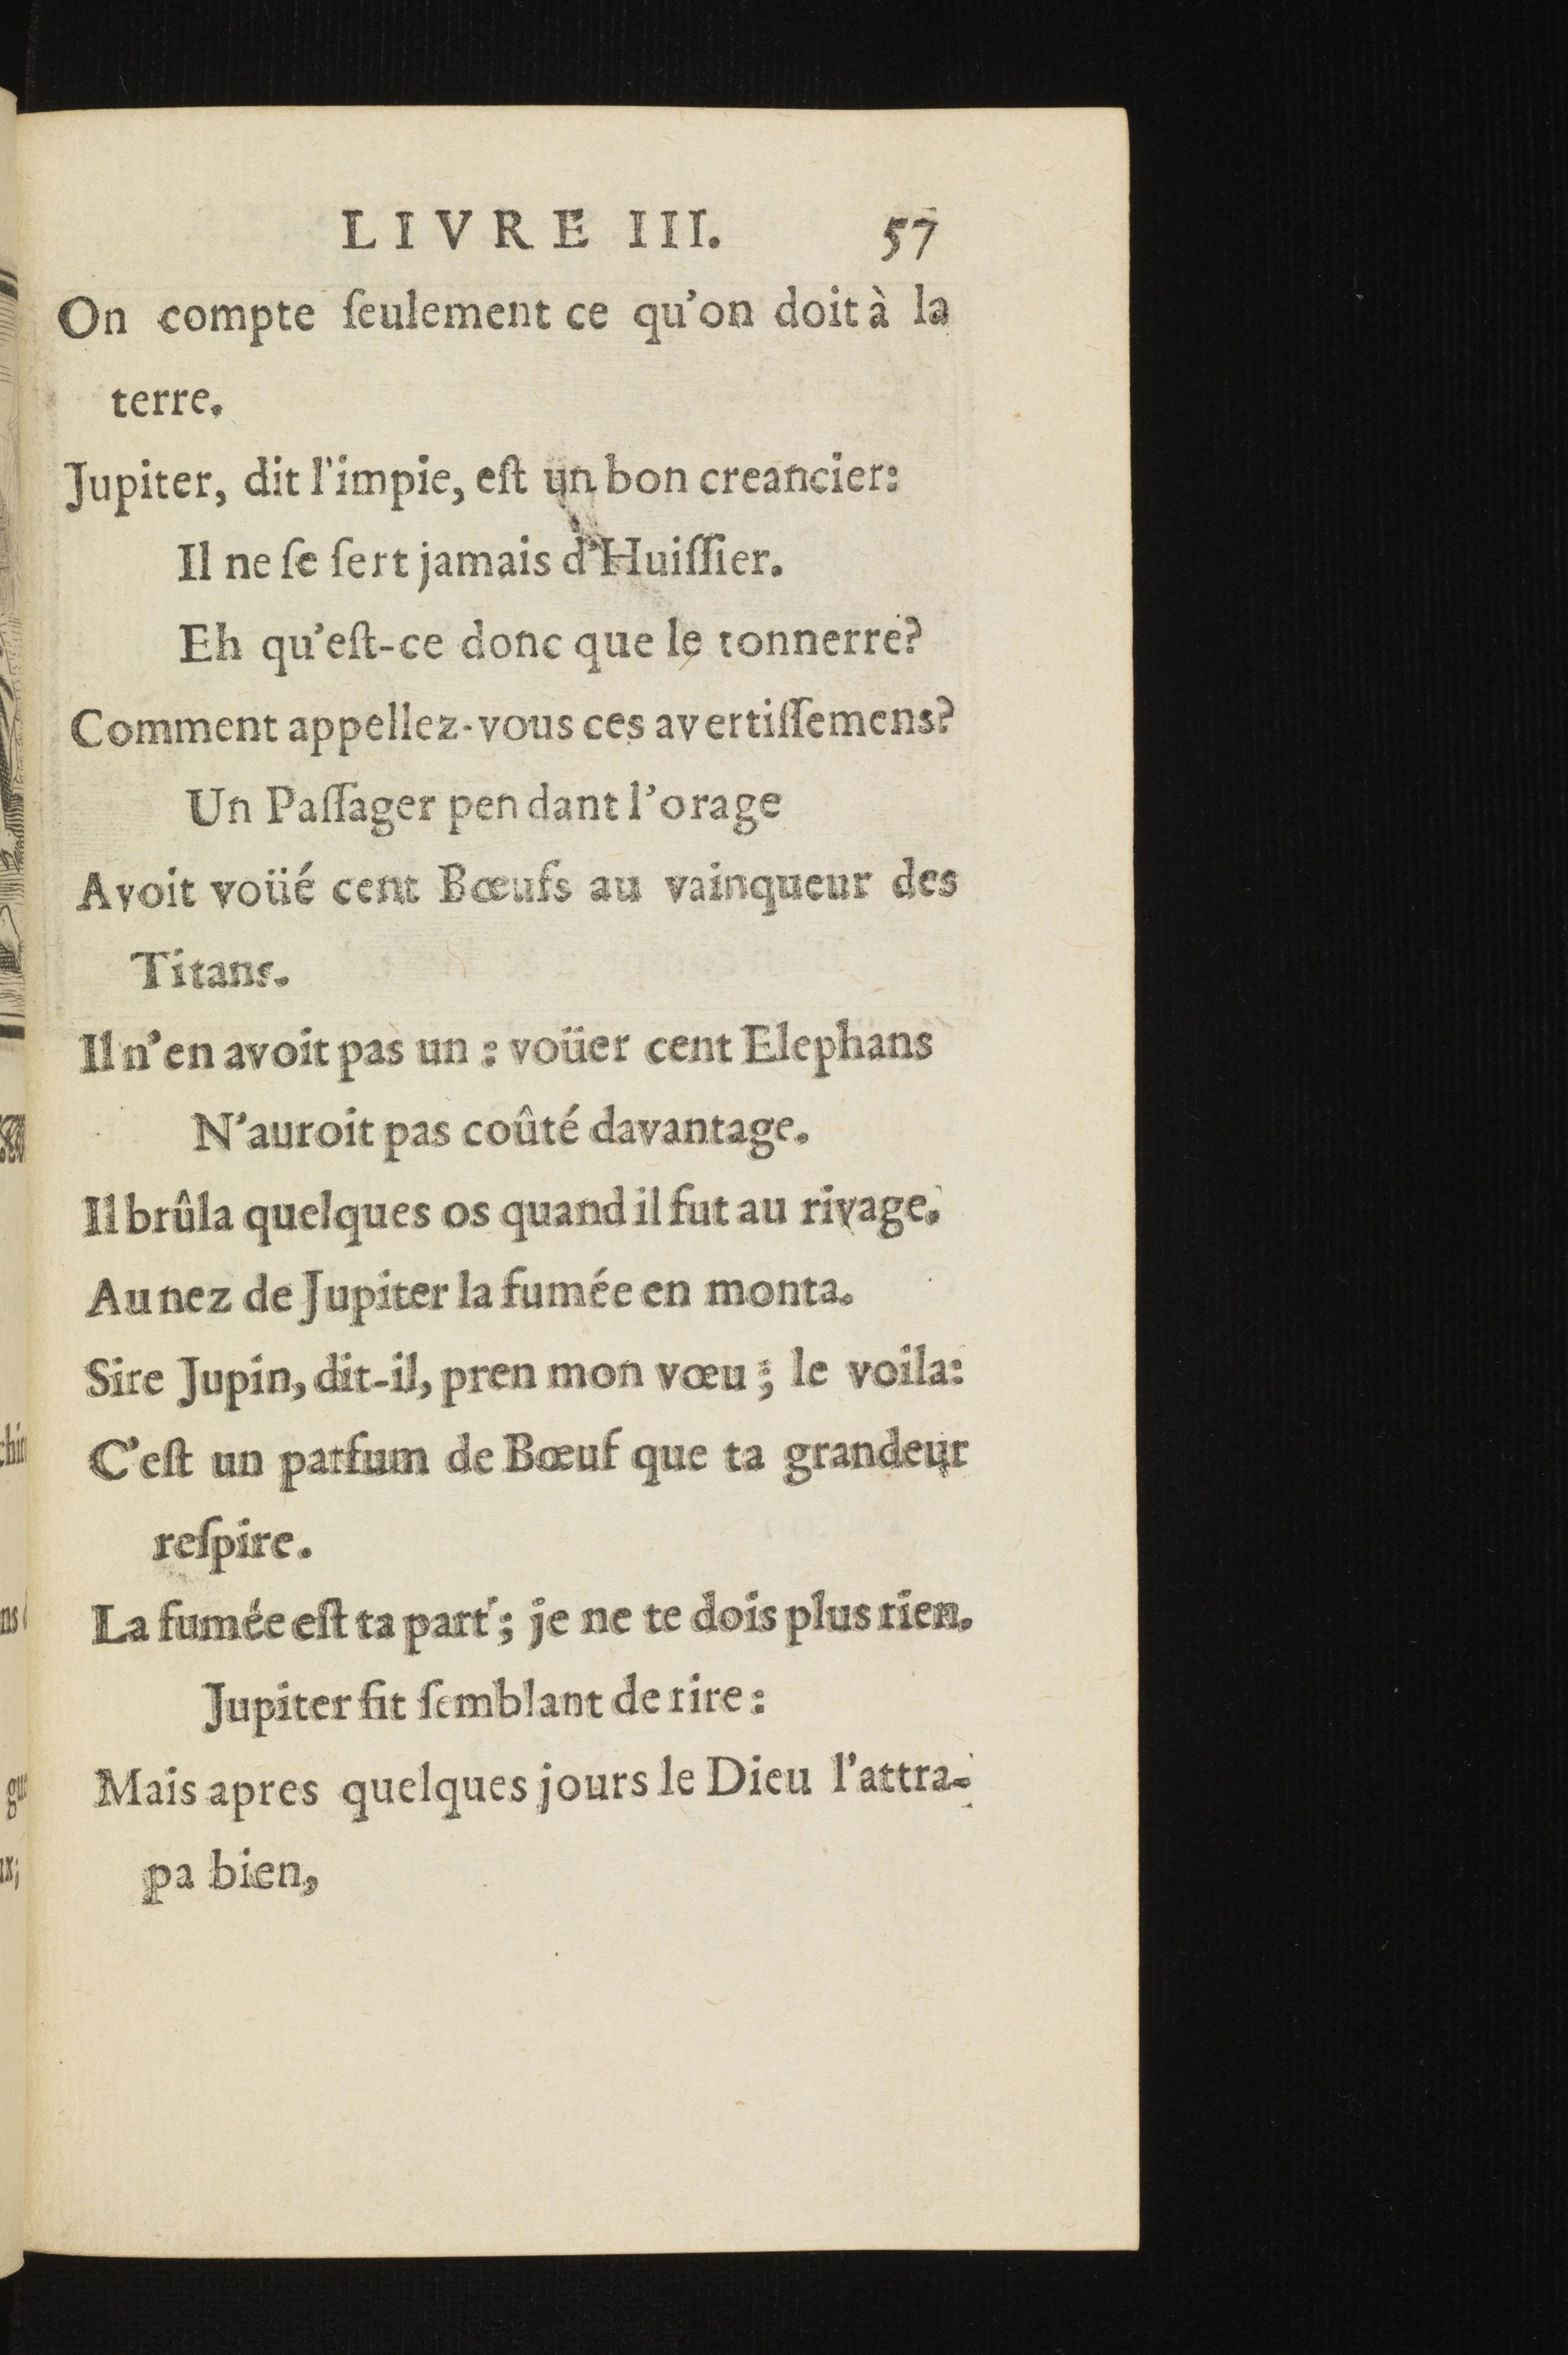 LIVRE III. 57
On compte ſeulement ce qu'on doit à la
terre.
Jupiter, dit l'impie, eſt un bon creancier:
Il ne ſe ſert jamais d'Huiſſier.
Eh qu'eſt-ce donc que le tonnerre?
Comment appellez-vous ces avertiſſemens?
Un Paſſager pendant l'orage
Avoit voüé cent Bœufs au vainqueur des
Titans.
Il n'en avoit pas un : voüer cent Elephans
N'auroit pas coûté davantage.
Il brûla quelques os quand il fut au rivage.
Au nez de Jupiter la fumée en monta.
Sire Jupin, dit-il, pren mon vœu ; le voila:
C'eſt un parfum de Bœuf que ta grandeur
reſpire.
La fumée eſt ta part ; je ne te dois plus rien.
Jupiter fit ſemblant de rire :
Mais apres quelques jours le Dieu l'attra-
pa bien,